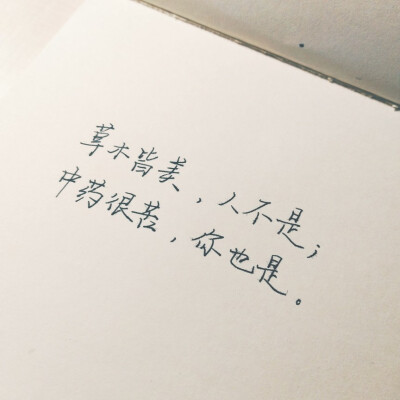 草木皆美，人不是；
中药很苦，你也是。